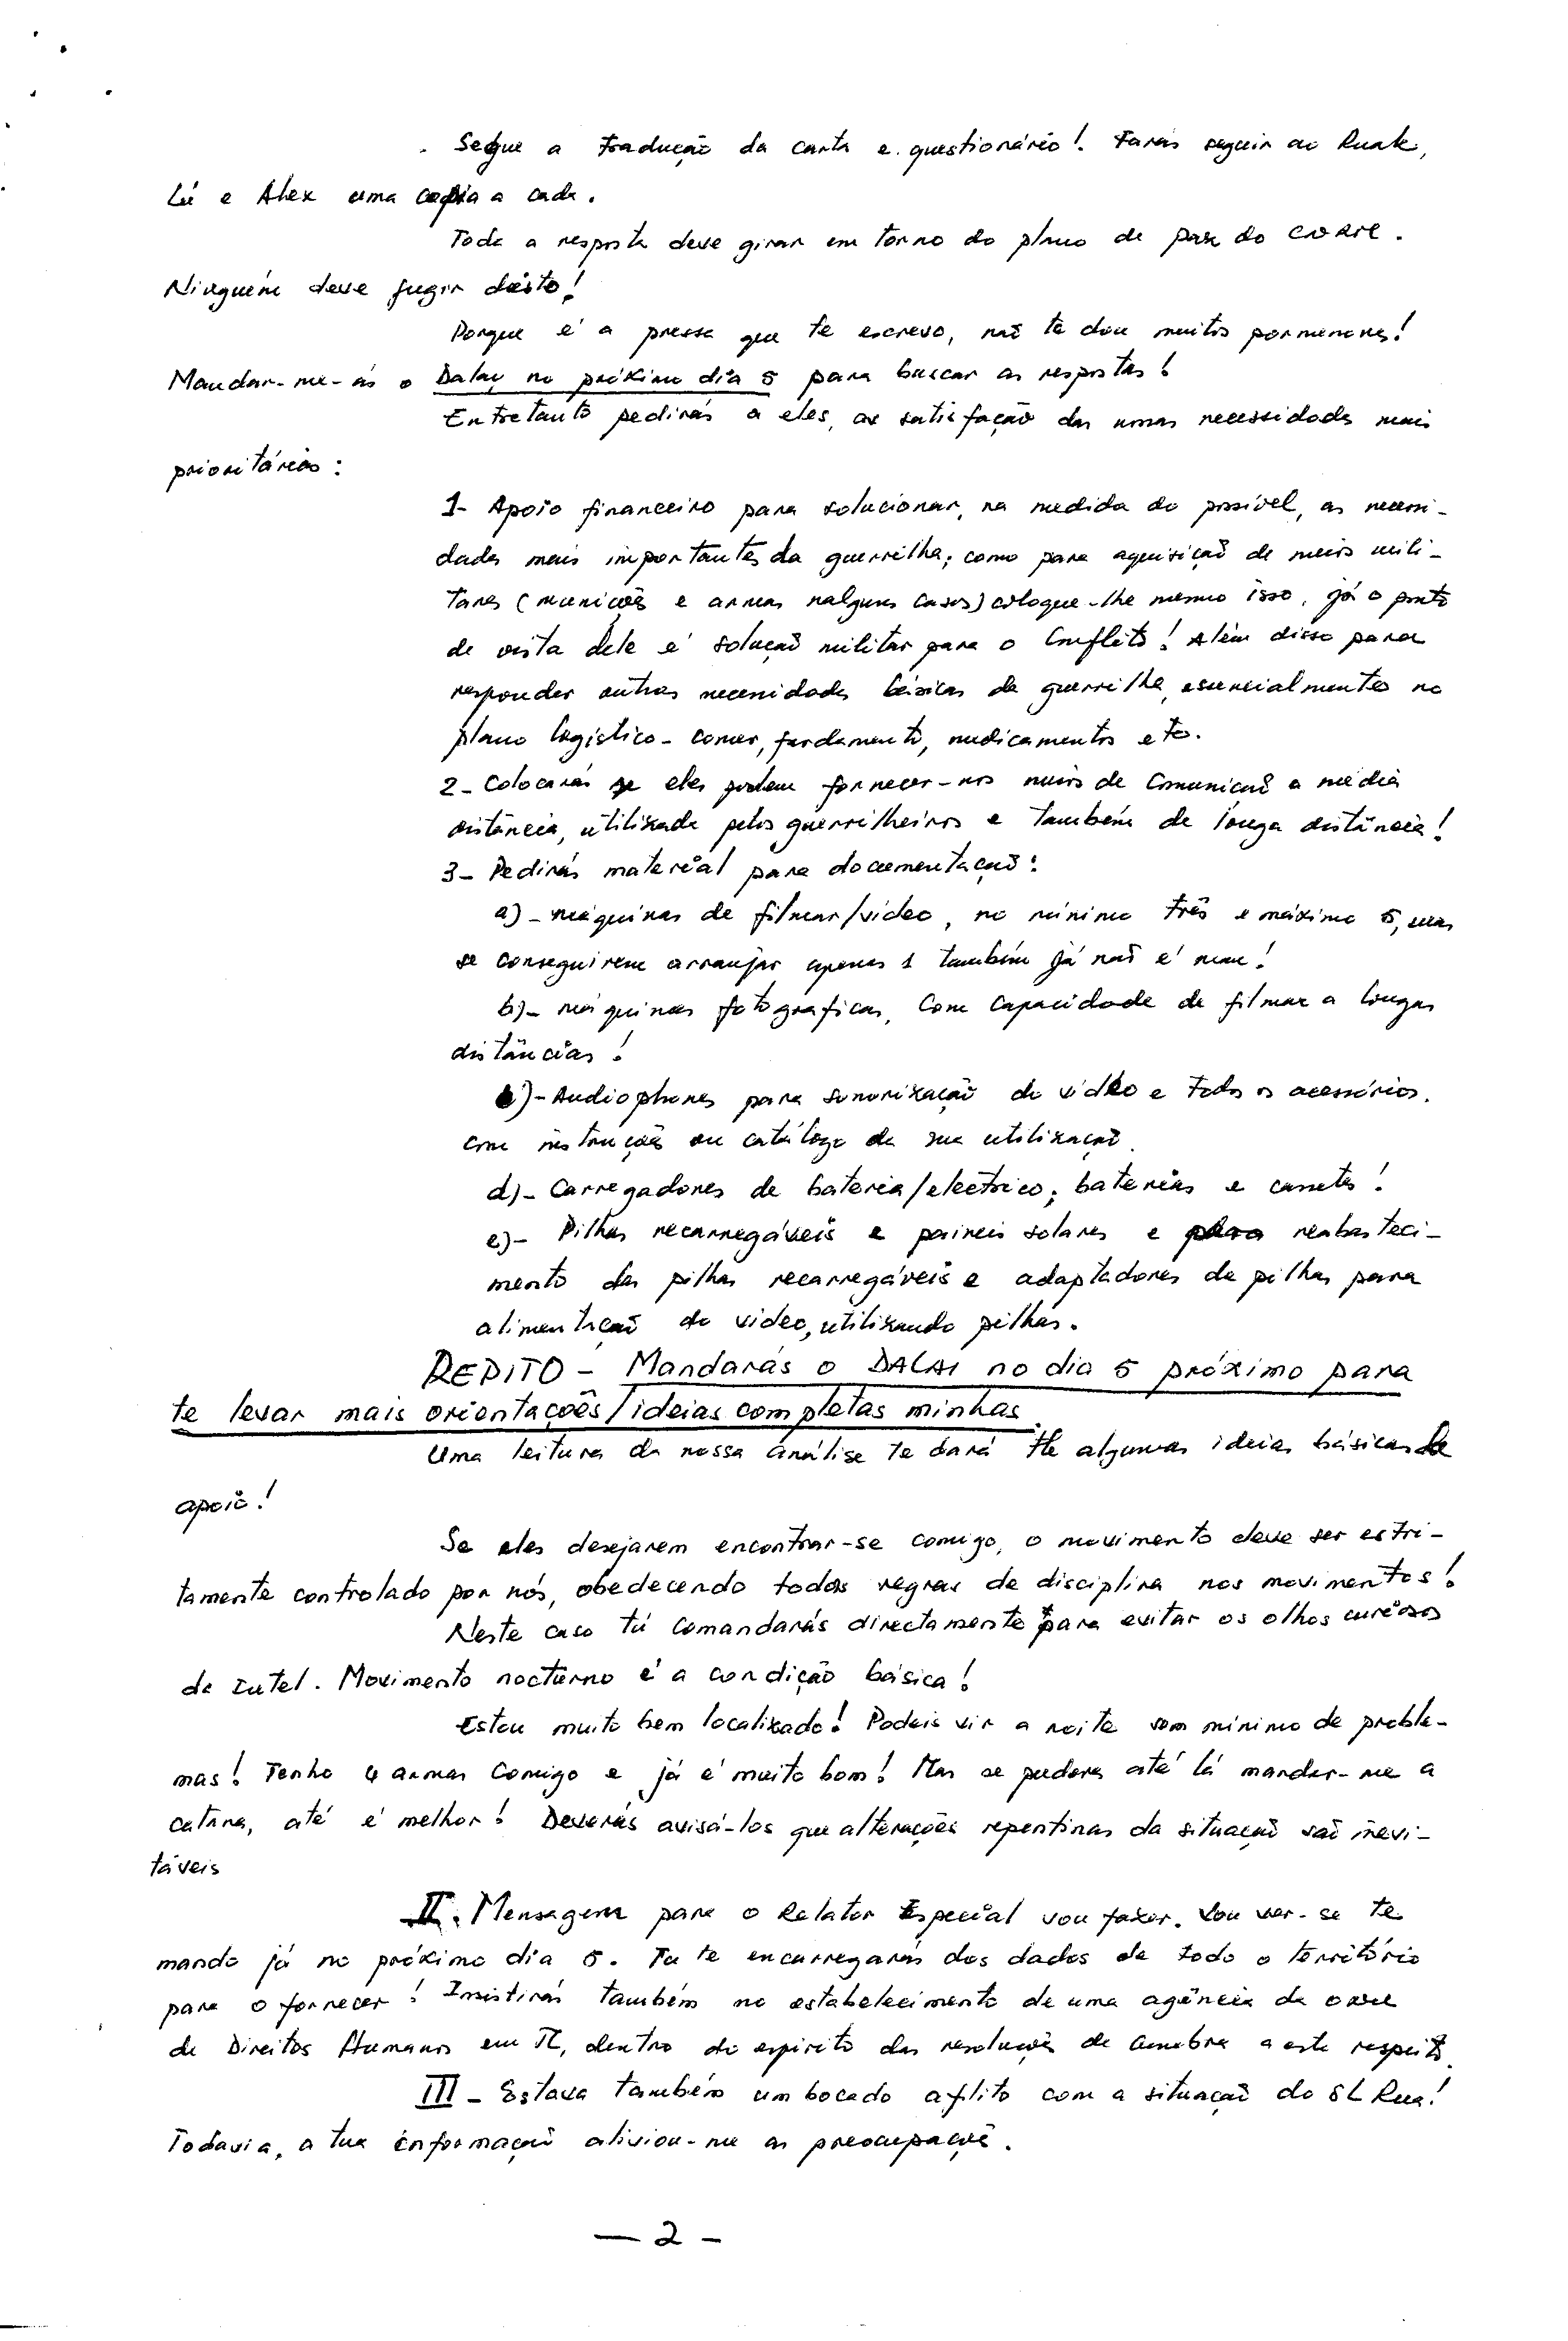 Segue a tradução da carta e questionário! Farás seguir ao Ruak,
Lú e Alex uma copia a cada.
Toda a resposta deve girar em torno do plano de paz do CNRM.
Ninguém deve fugir disto!
Porque é a pressa que te escrevo, não te dou muitos pormenores!
Mandar-me-ás o Dalay no próximo dia 5 para buscar as respostas!
Entretanto pedirás a eles, a satisfação das nossas necessidades mais
prioritários:
1- Apoio financeiro para solucionar, na medida do possível, as necessi-
dades mais importantes da guerrilha; como para aquisição de meios mili-
tares (munições e armas nalguns casos) coloque-lhe mesmo isso, já o ponto
de vista dele é solução militar para o conflito! Além disso para
responder outras necessidades básicas da guerrilha, essencialmentes no
plano logístico - comer, fardamento, medicamentos etc.
2- Colocarás se eles podem fornecer-nos meios de comunicação a média
distância, utilizada pelos guerrilheiros e também de longa distância!
3- Pedirás material para documentação:
a)- máquinas de filmar/vídeo, no mínimo três e máximo 5, mas
se conseguirem arranjar apenas 1 também já não é mau!
b)- máquinas fotograficas, com capacidade de filmar a longas
distâncias!
c)- Audiophones para sonorização do vídeo e todos os acessórios.
com instruções ou catálogo da sua utilização.
d)- Carregadores de bateria/electrico; baterias e cassetes!
e)- Pilhas recarregáveis e paineis solares e para reabasteci-
mento das pilhas recarregáveis e adaptadores de pilhas para
alimentação do video, utilizando pilhas.
REPITO - Mandarás o DALAI no dia 5 próximo para
te levar mais orientações/ideias completas minhas.
Uma leitura da nossa análise te dará algumas ideias básicas de
apoio!
Se eles desejarem encontrar-se comigo, o movimento deve ser estri-
tamente controlado por nós, obedecendo todas regras de disciplina nos movimentos!
Neste caso tú comandarás directamente para evitar os olhos curiosos
da Intel. Movimento nocturno é a condição básica!
Estou muito bem localizado! Podeis vir a noite sem mínimo de proble-
mas! Tenho 4 armas comigo e já é muito bom! Mas se puderes até lá mandar-me a
catana, até é melhor! Deverás avisá-los que alterações repentinas da situação são inevi-
táveis
II. Mensagem para o Relator Especial vou fazer. Vou ver-se te
mando já no próximo dia 5. Tu te encarregarás dos dados de todo o território
para o fornecer! Insistirás também no estabelecimento de uma agência da
de Direitos Humanos em TL, dentro do espirito das resoluções de Genebra a este respeito.
III - Estava também um bocado aflito com a situação do SL Rua!
Todavia, a tua informação aliviou-me as preocupações.
- 2 -